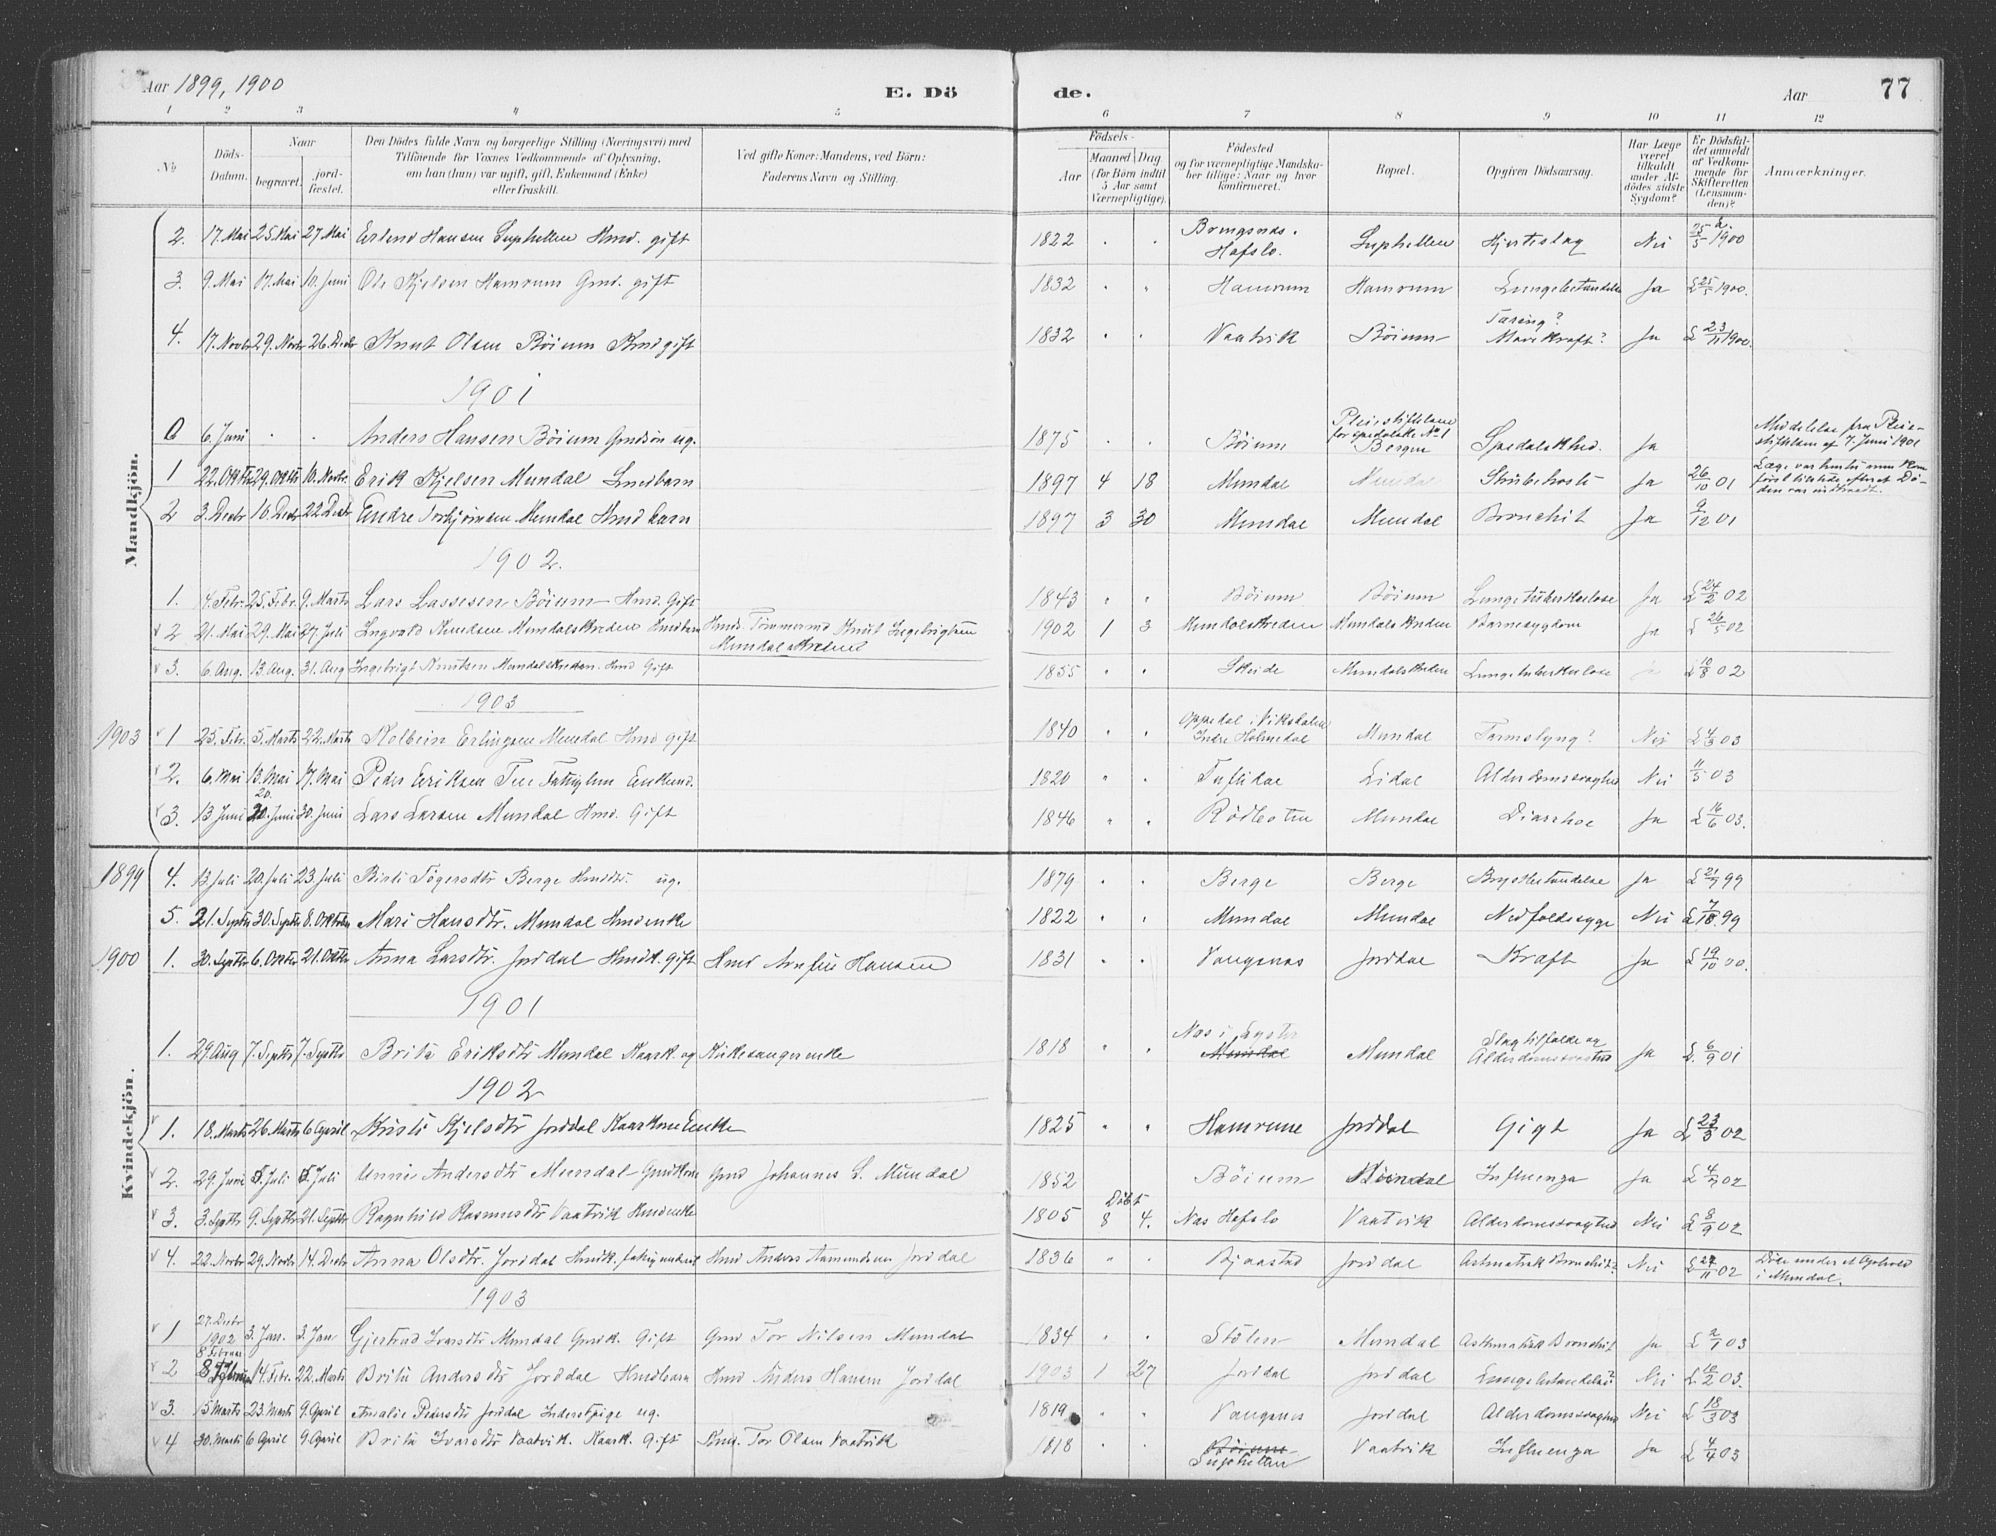 Aar 1899, 1900 E. Dö de. Aar 77
1 2 3 4 5 6 7 8 9 10 11 12
No
Döds-Datum.
Naar
begravet.
jord-fæstet.
Den Dödes fulde Navn og borgerlige Stilling (Næringsvei) med
Tilföiende for Voxnes Vedkommende af Oplysning,
om han (hun) var ugift, gift, Enkemand (Enke)
eller fraskilt.
Ved gifte Koner: Mandens, ved Börn:
Faderens Navn og Stilling.
Födsels-
Aar
Maaned Dag
(for Börn indtil
5 Aar samt
Værnepligtige).
Födested
og for værnepligtige Mandska-
ber tillige: Naar og hvor
konfirmeret.
Bopæl.
Opgiven Dödsaarsag.
Har Læge
været
tilkaldt
under Af-
dödes sidste
Sygdom?
Er Dödsfal-
det anmeldt
af Vedkom-
mende for
Skifteretten
(Lensman-
den)?
Anmærkninger.
Mandkjön.
2. 17. Mai 25. Mai 27 Mai Erlend Hansen Suphellen Hmd. gift 1822 " " Bringsnæs. Hafslo. Suphellen Hjerteslag Nei 25/5 1900
3. 9. Mai 17. Mai 10. Juni Ole Kjelsen Hamrum Gmd. gift 1832 " " Hamrum Hamrum Lungebetændelse Ja L 25/5 1900.
4. 17. Novbr 29. Novbr 26. Decbr Knut Olsen Böium Kmd gift 1832 " " Vaatvik Böium Tæring? Mavekræft? Ja L 23/11 1900.
1901
0 6. Juni " " Anders Hansen Böium Gmdsön ug. 1875 " " Böium Pleiestiftelsen for spedalske No 1 Bergen Spedalskhed. Ja Meddelelse fra Pleie-
stiftelsen af 7. Juni 1901
1 22. Oktbr 29. Oktbr 10. Novbr. Erik Kjelsen Mundal 1897 4 18 Mundal Mundal Strubehoste Ja 26/10 01 Læge var hentet men kom
först tilstede efter at Dö-
den var indtraadt.
2 3. Decbr 10. Decbr 22 Decbr Endre Torbjörnsen Mundal Hmd barn 1897 3 30 Mundal Mundal Bronchit Ja 9/12 01
1902.
1. 4. Febr. 25. Febr. 9. Marts Lars Lassesen Böium Hmd. Gift 1843 " " Böium Böium Lungetuberkulose Ja L 24/2 02
2 21. Mai 29. Mai 27 Juli Ingvald Knudsen Mundalskreden Hmdbarn Hmd. Tömmermd Knut Ingebrigtsen Mundalskreden 1902 1 3 Mundalskreden Mundalskreden Barnesygdom Ja L 26/5 02
3. 6. Aug. 13. Aug. 31. Aug Ingebrigt Knutsen Mundalskreden. Hmd Gift 1855 " " Skeide Mundalskreden Lungetuberkulose L 10/8 02
1903
1903 1 25. Febr. 5. Marts 22. Marts Kolbein Erlingsen Mundal Hmd gift 1840 " " Oppedal i Viksdalen Indre Holmedal Mundal Tarmslyng? Nei L 4/3 03
2. 6. Mai 13. Mai 17. Mai Peder Eriksen Fattiglem Enkmd. 1820 " " Lidal Alderdomssvaghed Nei 11/5 03
3. 13 Juni 20. Juni 30. Juni Lars Larsen Mundal Hmd. Gift 1846 " " Mundal Diarrhoe Ja L 16/6 03.
Kvindekjön.
1899 4. 13 Juli 20. Juli 23. Juli Berge Hmdsdtr. ug. 1879 " " Berge Berge Brystbetændelse Ja L 21/7 99
5. 21. Septbr 30. Septbr 8. Oktober Mari Hansdtr. Mundal Hmdenke 1822 " " Mundal Mundal Nedfaldssyge Nei L 7/10. 99
1900 1. 30. Septbr 6. Oktbr 21. Oktbr Anna Larsdtr. Jordal Hmdk. gift Hmd Arnfin Hansen 1831 " " Vangsnæs Jordal Kræft Ja L 19/10 00.
1901
1. 29. Aug 7. Septbr 7. Septbr Brita Eriksdtr Mundal Kaark. og Kirkesangerenke 1818 " " Næs i Lyster Mundal Mundal Slagtilfælde og Alderdomssvaghed Ja L. 6/9 01
1902
1. 18. Marts 26. Marts 6 April Kristi Kjelsdtr Jordal Kaarkone Enke 1825 " " Hamrum Jordal Gigt Ja L 22/3 02
2. 29. Juni 5. Juli 5. Juli Anni Andersdtr Mundal Gmdkone Gmd Johannes L. Mundal 1852 Böium Mundal Influenza Ja L 4/7 02
3. 3. Septbr 9. Septbr 21. Septbr Ragnhild Rasmusdtr Vaatvik Hmdenke 1805 Döbt 8 4. Næs Hafslo Vaatvik Alderdomssvaghed Nei L 8/9 02
4. 22. Novbr 29. Novbr 14. Decbr Anna Olsdtr. Jordal Hmdk. Hmd Anders Aamundsen Jordal 1836 " " Bjaastad Jordal Astmatisk Bronchit? Nei L 27/11 02 Döde under et Ophold
i Mundal.
1903
1 27. Decbr 1902 3. Jan. 3. Jan Gjertrud Ivarsdtr Mundal Gmdk. Gift Gmd Tor Nilsen Mundal 1834 " " Stölen Mundal Asthmatisk Bronchit Ja L 2/1 03
2 8 Februar 14. Febr. 22. Marts Brita Andersdtr Jordal Hmdbarn Hmd Anders Hansen Jordal 1903 1 27 Jordal Jordal Lungebetændelse? Nei L 10/2 03.
3. 15 Marts 23. Marts 9. April Amalie Pedersdtr Jordal Inderstpige ug. 1819 " " Vangsnes Jordal Alderdomssvaghed Nei L 18/3 03
4 30. Marts 6 April 9. April Brita Ivarsdtr Vaatvik. Kaark. Gift Kmd. Tor Olsen Vaatvik 1818 " " Böium Suphellen Vaatvik Influenza Ja L 4/4 03